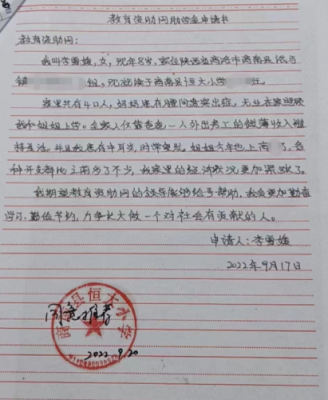 教育资助网助学金申请书
教育资助网:
我叫李雪媛,女,现年8岁,家住陕西省商洛市商南县
镇 组,现就读于商南县恒大小学
家里共有4口人,妈妈患有腰间盘突出症,无业在家照顾
我和姐姐上学。全家人仅靠爸爸一人外出务工的微薄收入维
持生活。并且爸爸有中耳炎,时常复发,姐姐今年也上高 了,各
种开支都比之前多了不少,我家里的经济状况更加紧张了。
我期望教育资助网的领导能够给予帮助,我会更加勤奋
学习,勤俭节约,力争长大做一个对社会有贡献的人。
申请人:李雪媛
2022年9月17日
县恒大小学
2022.9.20